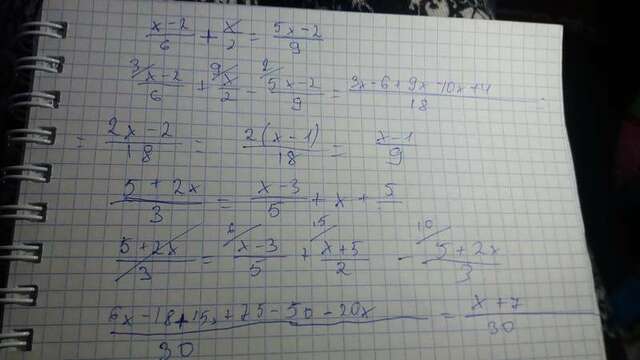 x-2/6 + x/2 = 5x-2/9
3/ x-2/6 + 9/ x/2 - 2/ 5x-2/9 = 3x-6+9x-10x+4/18
= 2x-2/18 = 2(x-1)/18 = x-1/9
5+2x/3 = x-3/5 + x + 5/
5+2x/3 = 6/ x-3/5 + 15/ x+5/2 - 10/ 5+2x/3
6x-18+15x+75-50-20x/30 = x+7/30